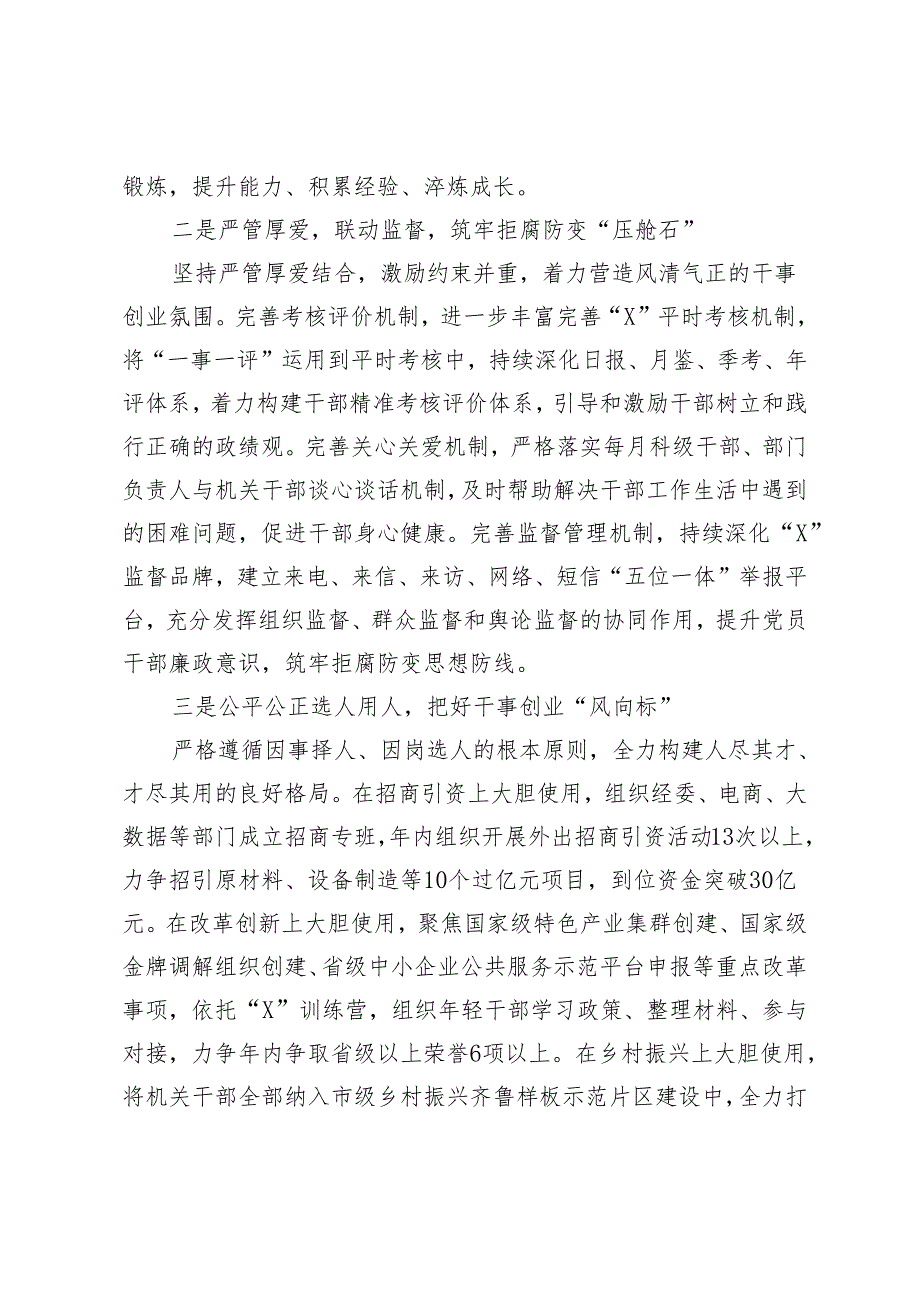 锻炼，提升能力、积累经验、淬炼成长。
二是严管厚爱，联动监督，筑牢拒腐防变“压舱石”
坚持严管厚爱结合，激励约束并重，着力营造风清气正的干事
创业氛围。完善考核评价机制，进一步丰富完善“X”平时考核机制，
将“一事一评”运用到平时考核中，持续深化日报、月鉴、季考、年
评体系，着力构建干部精准考核评价体系，引导和激励干部树立和践
行正确的政绩观。完善关心关爱机制，严格落实每月科级干部、部门
负责人与机关干部谈心谈话机制，及时帮助解决干部工作生活中遇到
的困难问题，促进干部身心健康。完善监督管理机制，持续深化“X”
监督品牌，建立来电、来信、来访、网络、短信“五位一体”举报平
台，充分发挥组织监督、群众监督和舆论监督的协同作用，提升党员
干部廉政意识，筑牢拒腐防变思想防线。
三是公平公正选人用人，把好干事创业“风向标”
严格遵循因事择人、因岗选人的根本原则，全力构建人尽其才、
才尽其用的良好格局。在招商引资上大胆使用，组织经委、电商、大
数据等部门成立招商专班，年内组织开展外出招商引资活动13次以上，
力争招引原材料、设备制造等10个过亿元项目，到位资金突破30亿
元。在改革创新上大胆使用，聚焦国家级特色产业集群创建、国家级
金牌调解组织创建、省级中小企业公共服务示范平台申报等重点改革
事项，依托“X”训练营，组织年轻干部学习政策、整理材料、参与
对接，力争年内争取省级以上荣誉6项以上。在乡村振兴上大胆使用，
将机关干部全部纳入市级乡村振兴齐鲁样板示范片区建设中，全力打